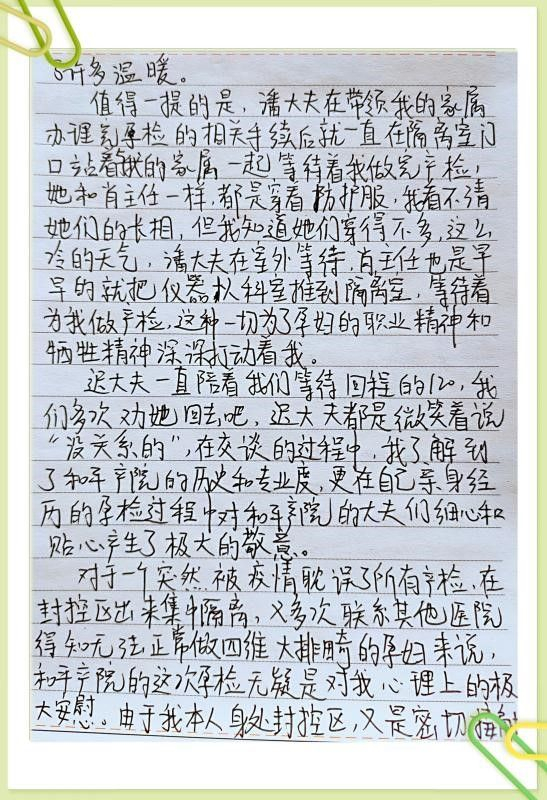 许多温暖。
值得一提的是，潘大夫在带领我的家属
办理完孕检的相关手续后就一直在隔离室门
口站着与我的家属一起等待着我做完产检，
她和肖主任一样，都是穿着防护服，我看不清
她们的长相，但我知道她们穿得不多，这么
冷的天气，潘大夫在室外等待，肖主任也是早
早的就把仪器从科室推到隔离室，等待着
为我做产检，这种一切为了孕妇的职业精神和
牺牲精神深深打动着我。
迟大夫一直陪着我们等待回程的120，我
们多次劝她回去吧，迟大夫都是微笑着说
“没关系的”，在交谈的过程中，我了解到
了和平产院的历史和专业度，更在自己亲身经
历的孕检过程中对和平产院的大夫们细心和
贴心产生了极大的敬意。
对于一个突然被疫情耽误了所有产检，在
封控区出来集中隔离，又多次联系其他医院
得知无法正常做四维大排畸的孕妇来说，
和平产院的这次孕检无疑是对我心理上的极
大安慰。由于我本人身处封控区，又是密切接